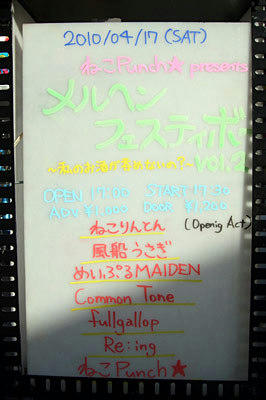 2010/04/17 (SAT)
ねこPunch★ presents
メルヘン
フェスティボー
vol.2
OPEN 17:00 START 17:30
ADV ¥1,000 DOOR ¥1,200
ねこりんとん (Openig Act)
風船うさぎ
めいぷるMAIDEN
Common Tone
fullgallop
Re:ing
ねこPunch★